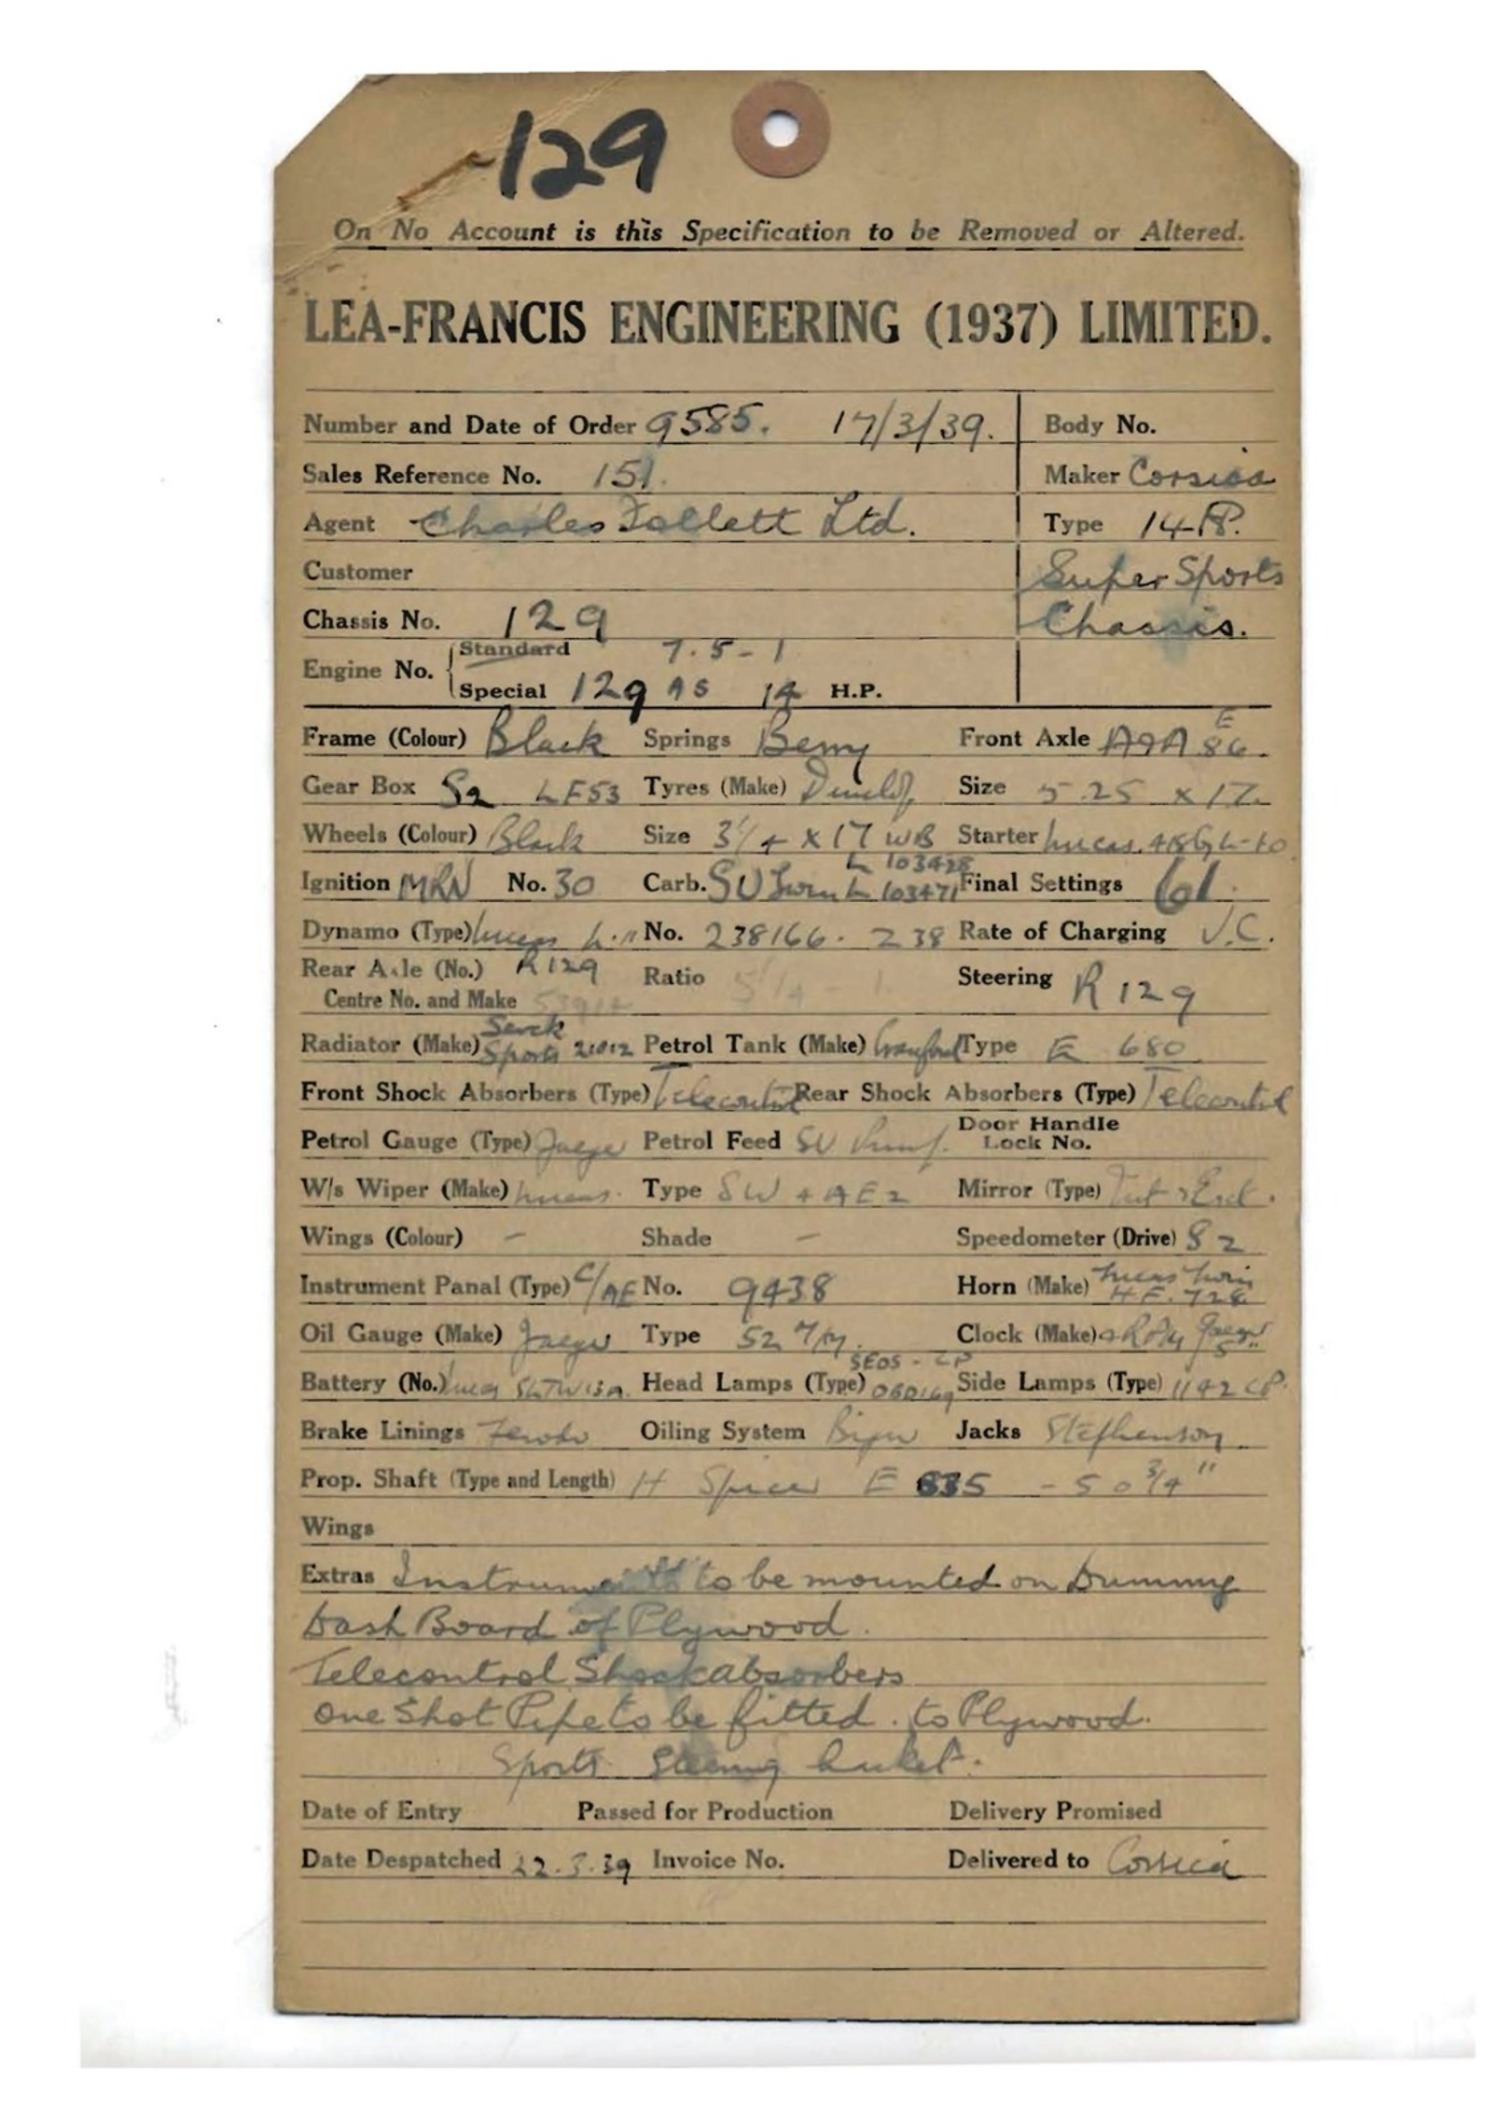 129
On No Account is this Specification to be Removed or Altered.
LEA-FRANCIS ENGINEERING (1937) LIMITED.
Number and Date of Order 9585. 17/3/39. Body No.
Sales Reference No. 151. Maker Corsica
Agent Charles Follett Ltd. Type 14 HP.
Customer Super Sports
Chassis No. 129 Chassis.
Engine No. Standard 7.5-1
Special 129 AS 14 H.P.
Frame (Colour) Black Springs Berry Front Axle A9A E 86.
Gear Box S2 LF53 Tyres (Make) Dunlop Size 5.25 x 17.
Wheels (Colour) Black Size 3 1/4 x 17 WB Starter Lucas
Ignition MRN No. 30 Carb. SU Twin L 103428 L 103471 Final Settings 61.
Dynamo (Type) Lucas No. 238166. 238 Rate of Charging V.C.
Rear Axle (No.) R129 Ratio 5 1/4 - 1. Steering R129
Centre No. and Make
Radiator (Make) Serck Sports 21012 Petrol Tank (Make) Type E 680
Front Shock Absorbers (Type) Telecontrol Rear Shock Absorbers (Type) Telecontrol
Petrol Gauge (Type) Jaeger Petrol Feed SU Pump. Door Handle Lock No.
W/s Wiper (Make) Lucas. Type SW + AE2 Mirror (Type) Int & Ext.
Wings (Colour) - Shade - Speedometer (Drive) 82
Instrument Panal (Type) C/AE No. 9438 Horn (Make) Lucas Twin H.F. 728
Oil Gauge (Make) Jaeger Type 52 M/M. Clock (Make) Jaeger 5"
Battery (No.) Lucas Head Lamps (Type) Side Lamps (Type) 1142 CP.
Brake Linings Ferodo Oiling System Bijur Jacks Stephenson
Prop. Shaft (Type and Length) H Spicer E 635 - 50 3/4"
Wings
Extras Instruments to be mounted on Dummy
Dash Board of Plywood.
Telecontrol Shockabsorbers
One Shot Pipe to be fitted. to Plywood.
Sports Steering
Date of Entry Passed for Production Delivery Promised
Date Despatched 22.3.39 Invoice No. Delivered to Corsica